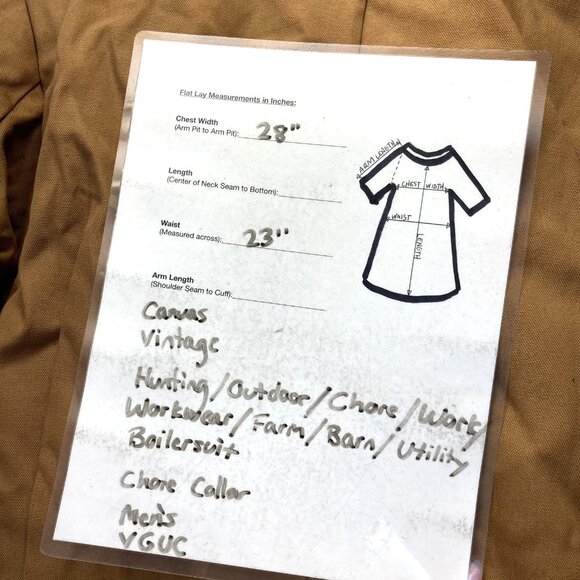 Flat Lay Measurements in Inches:
Chest Width
(Arm Pit to Arm Pit): 28"
Length
(Center of Neck Seam to Bottom):
Waist
(Measured across): 23"
Arm Length
(Shoulder Seam to Cuff):
ARM LENGTH
CHEST WIDTH
WAIST
LENGTH
Canvas
Vintage
Hunting/Outdoor/Chore/Work/
Workwear/Farm/Barn/Utility
Boilersuit
Chore Collar
Men's
VGUC